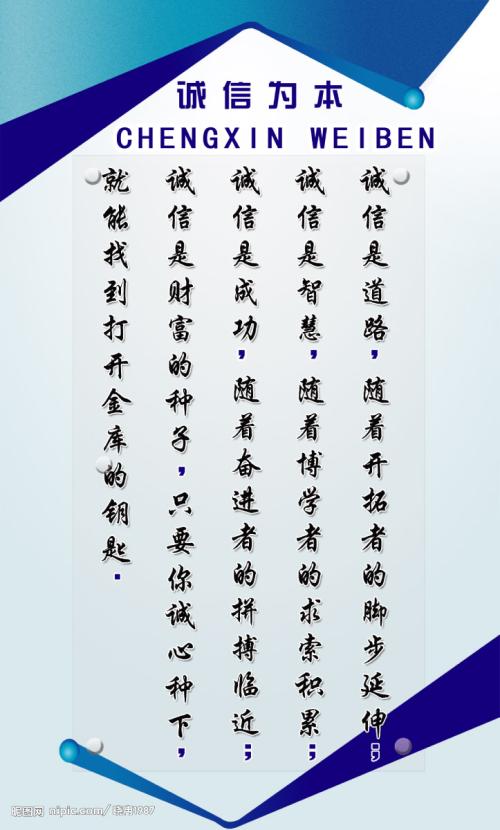 诚信为本
CHENGXIN WEIBEN
诚信是道路，随着开拓者的脚步延伸；
诚信是智慧，随着博学者的求索积累；
诚信是成功，随着奋进者的拼搏临近；
诚信是财富的种子，只要你诚心种下，
就能找到打开金库的钥匙.
昵图网 nipic.com/晓冉1987